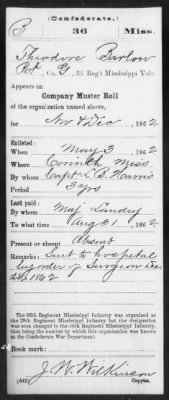 B
(Confederate.)
36 Miss.
Theodore Barlow
Pvt, Co. G, 36 Reg't Mississippi Vols.
Appears on
Company Muster Roll
of the organization named above,
for Nov & Dec, 1862
Enlisted:
When May 3, 1862
Where Corinth Miss
By whom Capt L. B. Harris
Period 3 yrs
Last paid:
By whom Maj Landry
To what time Aug 31, 1862
Present or absent Absent
Remarks: Sent to hospital
by order of Surgeon Dec
24 1862
The 36th Regiment Mississippi Infantry was organized as the
Regiment Mississippi Infantry but the designation
was soon changed to the 36th Regiment Mississippi Infantry,
that being the number by which this organization was known
at the Confederate War Department.
Book mark:
J. W. Wilkinson
(642) Copyist.